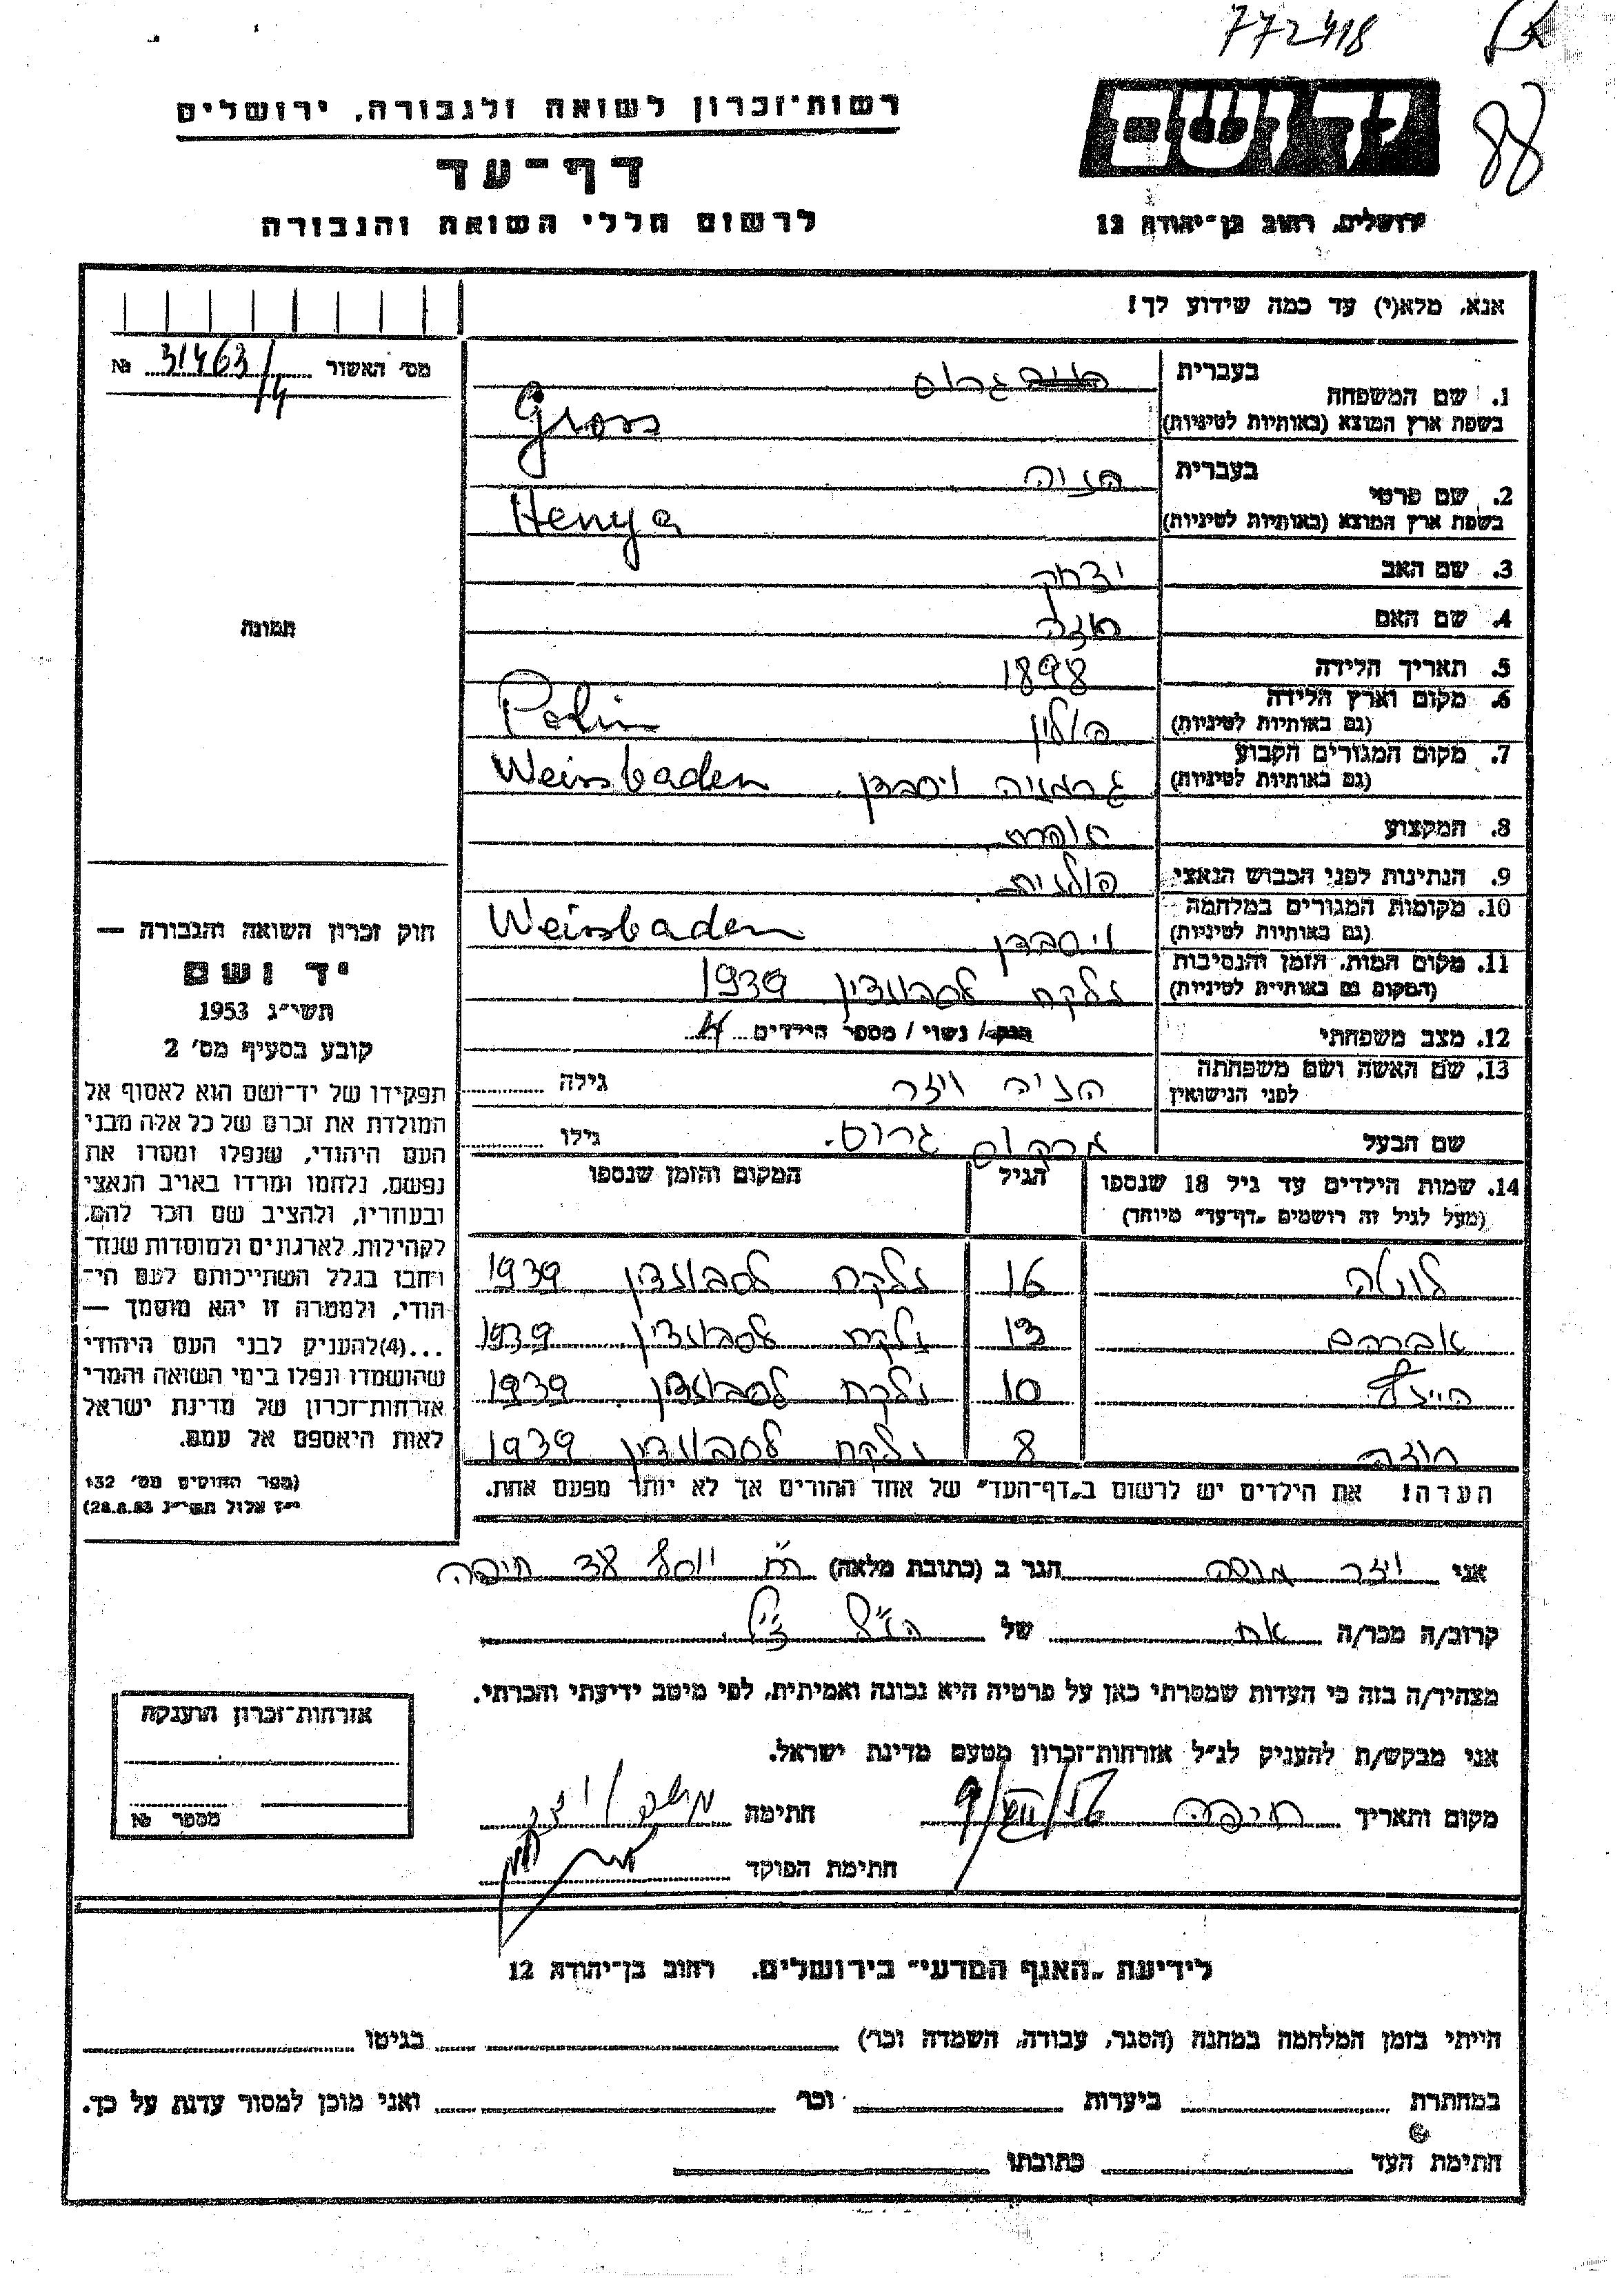 772418
88
יד ושם
רשות־זכרון לשואה ולגבורה, ירושלים
דף־עד
לרשום חללי השואה והגבורה
ירושלים, רחוב בן־יהודה 12
אנא, מלא(י) עד כמה שידוע לך!
מס׳ האשור 31463/4 №
תמונה
1. שם המשפחה
בעברית גרוס
בשפת ארץ המוצא (באותיות לטיניות) Gross
2. שם פרטי
בעברית הניה
בשפת ארץ המוצא (באותיות לטיניות) Henya
3. שם האב יצחק
4. שם האם
5. תאריך הלידה 1898
6. מקום וארץ הלידה פולין Polin
(גם באותיות לטיניות)
7. מקום המגורים הקבוע גרמניה ויסבדן. Weissbaden
(גם באותיות לטיניות)
8. המקצוע
9. הנתינות לפני הכבוש הנאצי פולנית
10. מקומות המגורים במלחמה ויסבדן Weissbaden
(גם באותיות לטיניות)
11. מקום המות, הזמן והנסיבות נלקח לסבונצין 1939
(המקום גם באותיות לטיניות)
12. מצב משפחתי רווק / נשוי / מספר הילדים 4
13. שם האשה ושם משפחתה הניה ויצר גילה
לפני הנישואין
שם הבעל מרקוס גרוס. גילו
14. שמות הילדים עד גיל 18 שנספו הגיל המקום והזמן שנספו
(מעל לגיל זה רושמים „דף־עד״ מיוחד)
16 נלקח לסבונצין 1939
אברהם 13 נלקח לסבונצין 1939
10 נלקח לסבונצין 1939
8 נלקח לסבונצין 1939
הערה! את הילדים יש לרשום ב„דף־העד״ של אחד ההורים אך לא יותר מפעם אחת.
חוק זכרון השואה והגבורה —
יד ושם
תשי״ג 1953
קובע בסעיף מס׳ 2
תפקידו של יד־ושם הוא לאסוף אל
המולדת את זכרם של כל אלה מבני
העם היהודי, שנפלו ומסרו את
נפשם, נלחמו ומרדו באויב הנאצי
ובעוזריו, ולהציב שם וזכר להם,
לקהילות, לארגונים ולמוסדות שנח־
רבו בגלל השתייכותם לעם הי־
הודי, ולמטרה זו יהא מוסמך —
...(4)להעניק לבני העם היהודי
שהושמדו ונפלו בימי השואה והמרי
אזרחות־זכרון של מדינת ישראל
לאות היאספם אל עמם.
(ספר החוקים מס׳ 132
י״ז אלול תשי״ג 28.8.53)
אני ויצר משה הגר ב (כתובת מלאה) רח יוסף חיפה
קרוב/ה מכר/ה אח של הנ״ל
מצהיר/ה בזה כי העדות שמסרתי כאן על פרטיה היא נכונה ואמיתית, לפי מיטב ידיעתי והכרתי.
אני מבקש/ת להעניק לנ״ל אזרחות־זכרון מטעם מדינת ישראל.
מקום ותאריך חיפה חתימה משה ויצר
חתימת הפוקד
אזרחות־זכרון הוענקה
מספר №
לידיעת „האגף המדעי״ בירושלים. רחוב בן־יהודה 12
הייתי בזמן המלחמה במחנה (הסגר, עבודה, השמדה וכו׳) בגיטו
במחתרת ביערות וכו׳ ואני מוכן למסור עדות על כך.
חתימת העד כתובתו